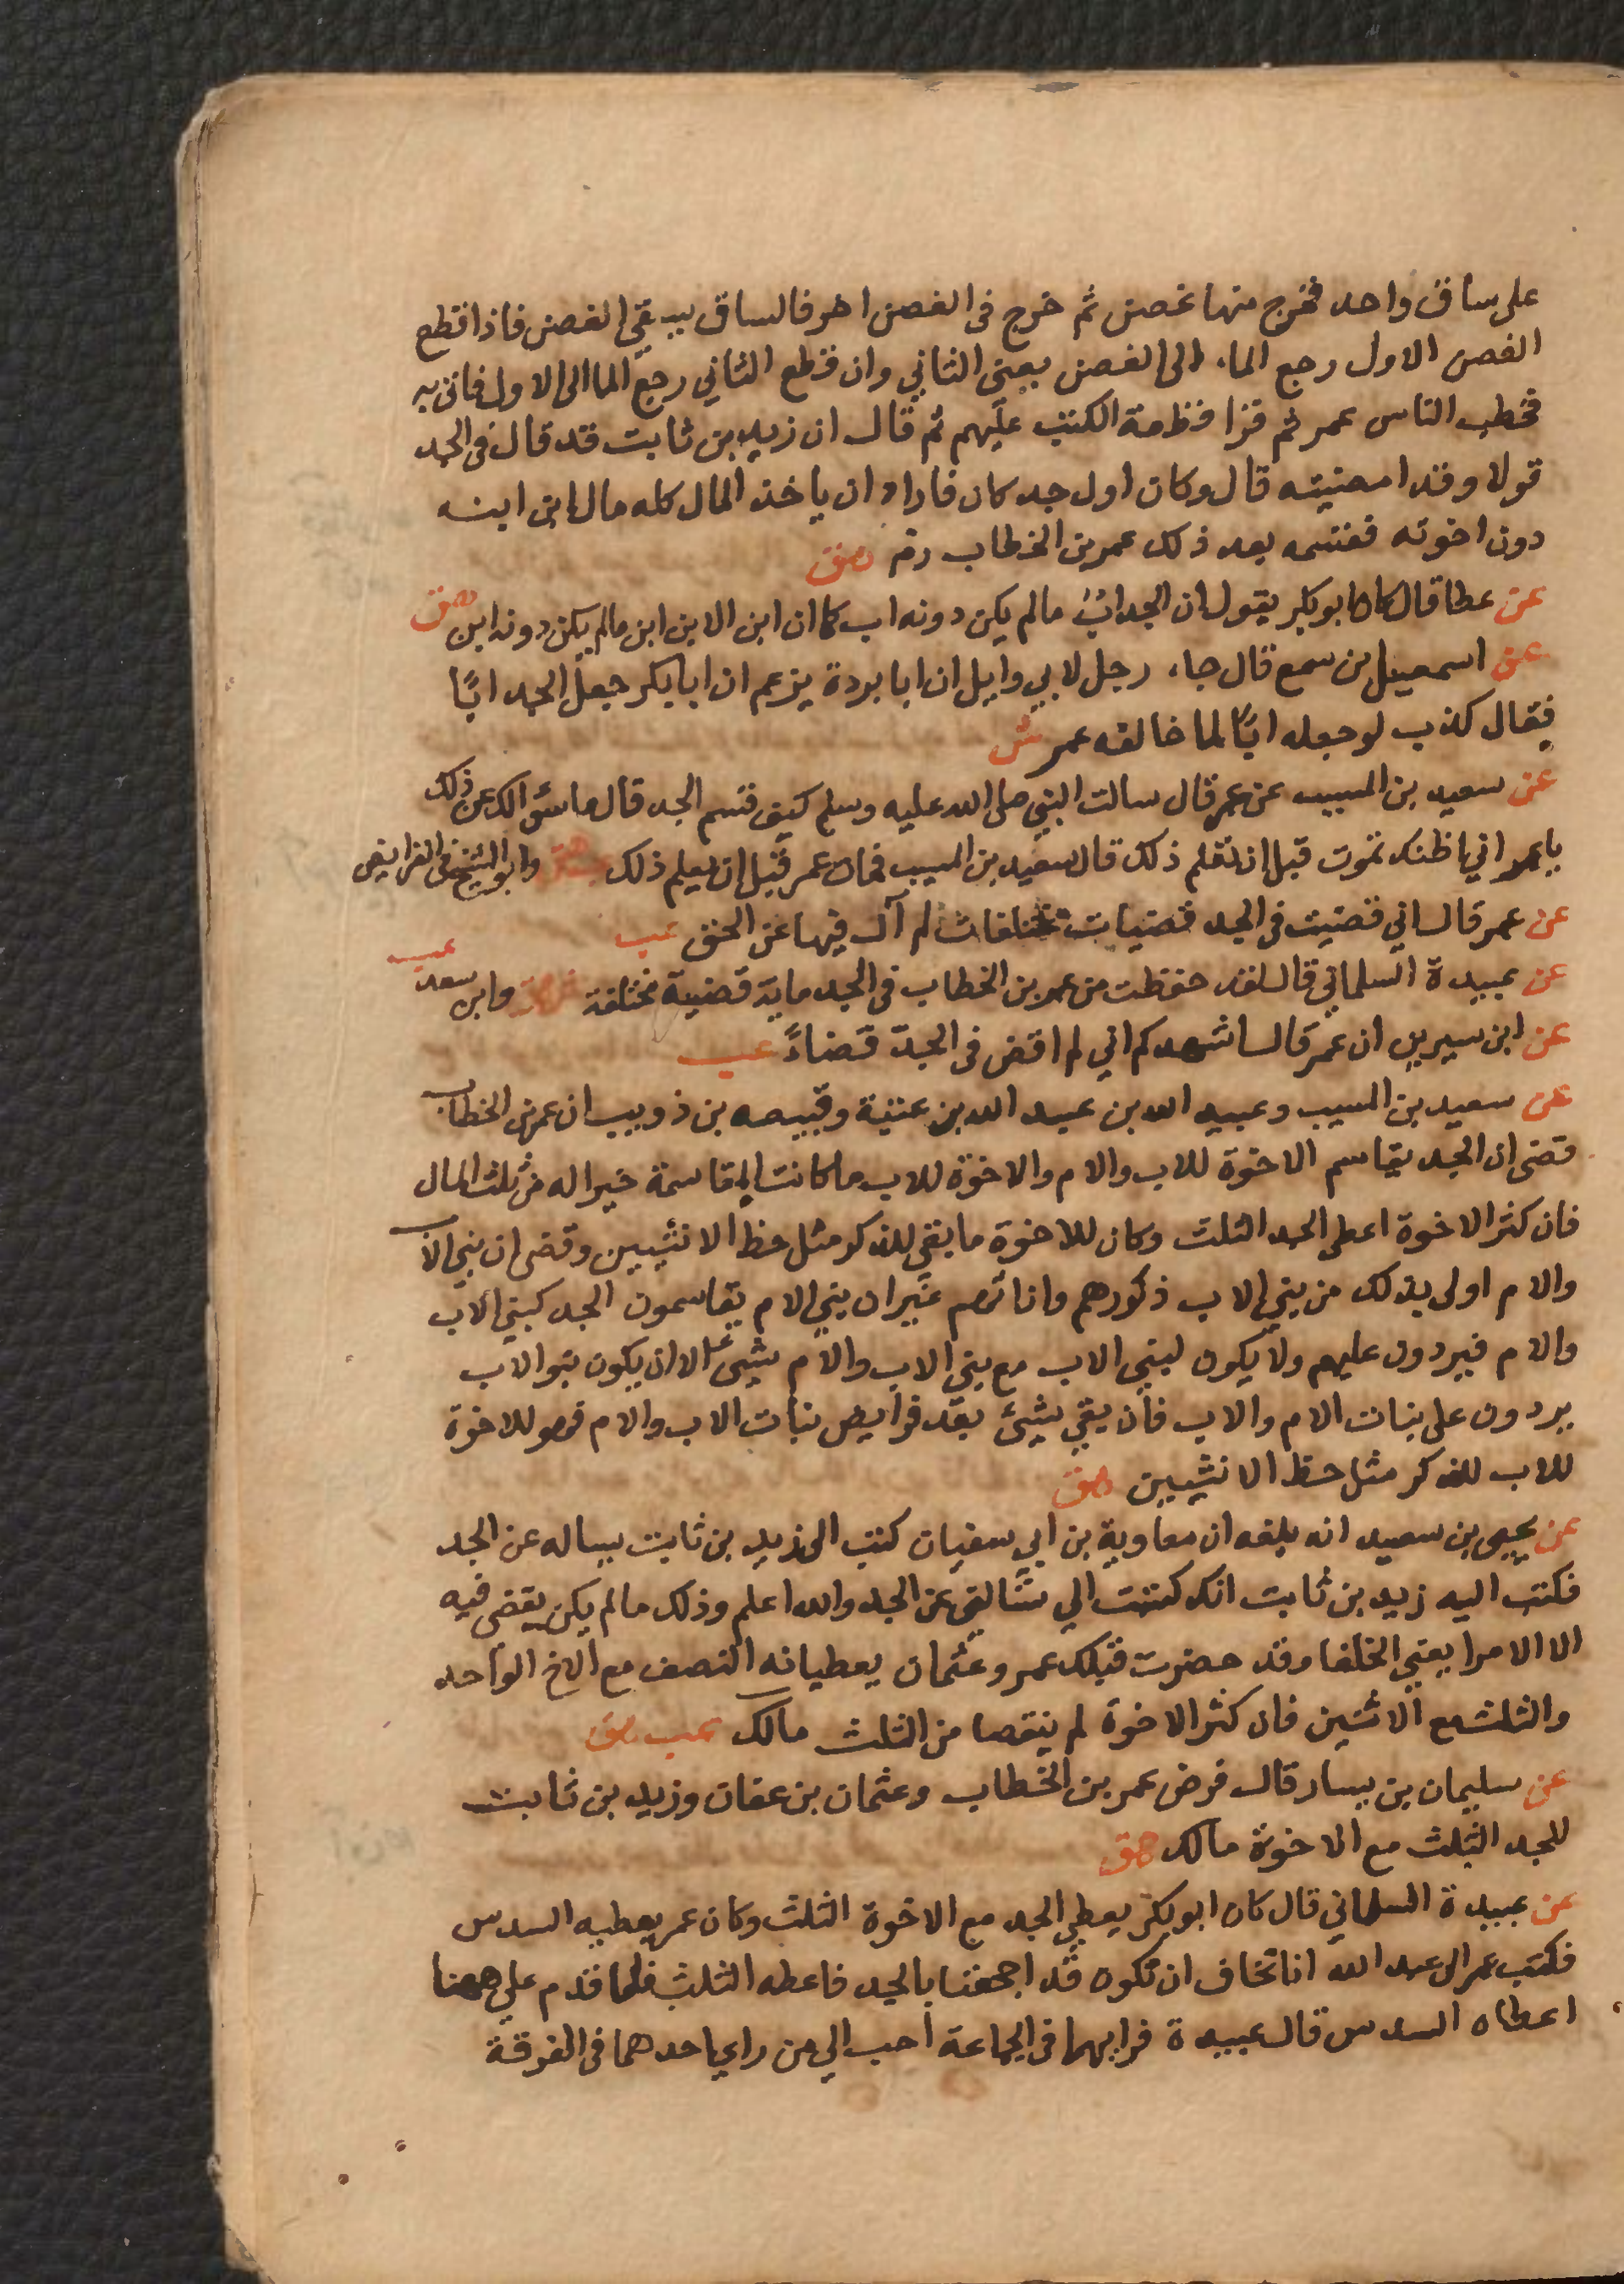 على ساق واحد فخرج منها غصن ثم خرج فى الغصن اخر فالساق يسقي الغصن فاذا قطع
الغصن الاول رجع الماء الى الغصن يعنى الثاني وان قطع الثاني رجع الما الى الاول فاتى به
فخطب الناس عمر ثم قرا قطعة الكتب عليهم ثم قال ان زيد بن ثابت قد قال فى الجد
قولا وقد امضيته قال وكان اول جد كان فاراد ان ياخذ المال كله مال ابن ابنه
دون اخوته فقسمه بعد ذلك عمر بن الخطاب رضه هق
عن عطا قال كان ابو بكر يقول ان الجد ابٌ مالم يكن دونه اب كما ان ابن الابن ابن مالم يكن دونه ابن هق
عن اسمعيل بن سمع قال جاء رجل لابي وايل ان ابا بردة يزعم ان ابا بكر جعل الجد ابًا
فقال كذب لو جعله ابًا لما خالفه عمر ش
عن سعيد بن المسيب عن عمر قال سالت النبي صلى الله عليه وسلم كيف قسم الجد قال ما سؤالك عن ذلك
يا عمر اني اظنك تموت قبل ان تعلم ذلك قال سعيد بن المسيب فمات عمر قبل ان يعلم ذلك هق وابو الشيخ فى الفرايض
عن عمر قال اني قضيت فى الجد قضيات مختلفات لم آل فيها عن الحق عب
عن عبيدة السلماني قال لقد حفظت من عمر بن الخطاب فى الجد ماية قضية مختلفة هق وابن سعد عب
عن ابن سيرين ان عمر قال اشهدكم اني لم اقض فى الجد قضاءً عب
عن سعيد بن المسيب وعبيد الله بن عبد الله بن عتبة وقبيصه بن ذويب ان عمر بن الخطاب
قضى ان الجد يقاسم الاخوة للاب والام والاخوة للاب ما كانت المقاسمة خيرا له من ثلث المال
فان كثر الاخوة اعطى الجد الثلث وكان للاخوة ما بقي للذكر مثل حظ الانثيين وقضى ان بني الاب
والام اولى بذلك من بني الاب ذكورهم واناثهم غير ان بني الام يقاسمون الجد كبني الاب
والام فيردون عليهم ولا يكون لبني الاب مع بني الاب والام شيئ الا ان يكون بنو الاب
يردون على بنات الام والاب فان بقي شيئ بعد فرايض بنات الاب والام فهو للاخوة
للاب للذكر مثل حظ الانثيين هق
عن يحيى بن سعيد انه بلغه ان معاوية بن ابي سفيان كتب الى زيد بن ثابت يساله عن الجد
فكتب اليه زيد بن ثابت انك كتبت الي تسالني عن الجد والله اعلم وذلك مالم يكن يقضى فيه
الا الامرا يعني الخلفا وقد حضرت قبلك عمر وعثمان يعطيانه النصف مع الاخ الواحد
والثلث مع الاثنين فان كثر الاخوة لم ينقصا من الثلث مالك عب هق
عن سليمان بن يسار قال فرض عمر بن الخطاب وعثمان بن عفان وزيد بن ثابت
للجد الثلث مع الاخوة مالك هق
عن عبيدة السلماني قال كان ابو بكر يعطي الجد مع الاخوة الثلث وكان عمر يعطيه السدس
فكتب عمر الى عبد الله انا نخاف ان نكون قد اجحفنا بالجد فاعطه الثلث فلما قدم علي ههنا
اعطاه السدس قال عبيدة فرايهما فى الجماعة احب الي من راي احدهما فى الفرقة